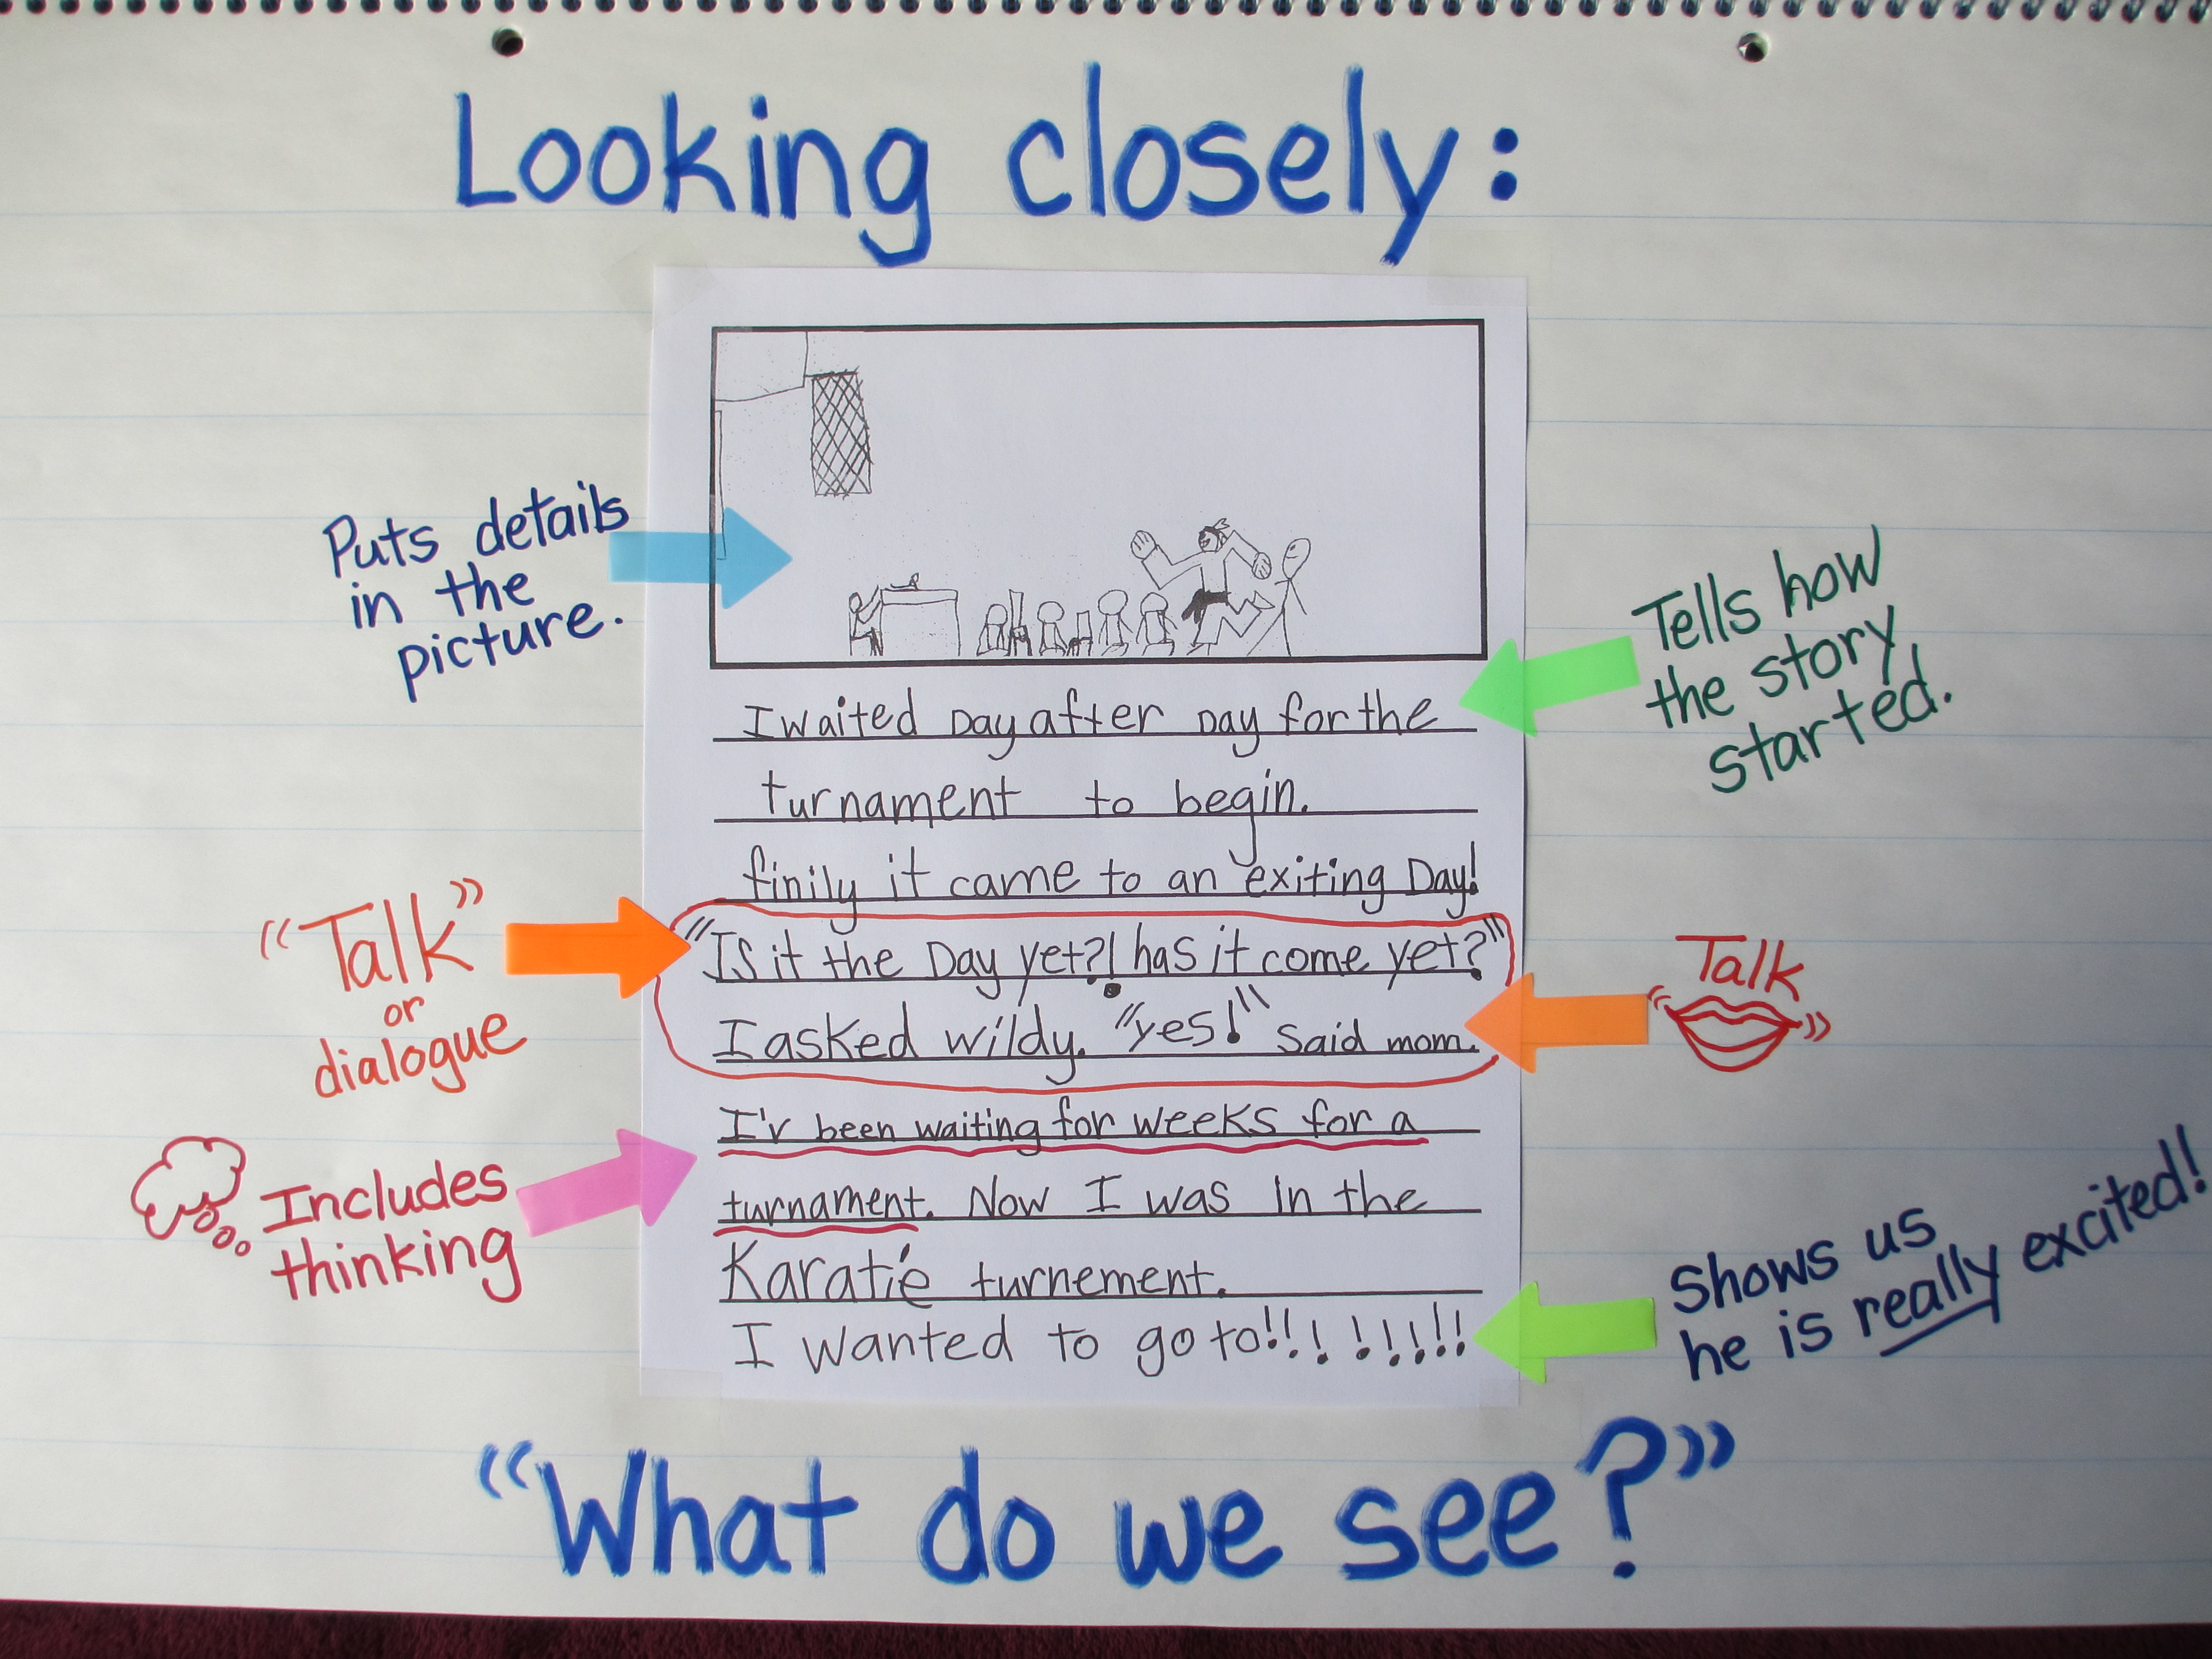 Looking closely:
Puts details
in the
picture.
Tells how
the story
started.
I waited Day after Day for the
turnament to begin.
finily it came to an exiting Day!
"IS it the Day yet?! has it come yet?"
I asked wildy. "yes!" Said mom.
I'v been waiting for weeks for a
turnament. Now I was in the
Karatie turnement.
I wanted to go to!!! !!!!!!
"Talk"
or
dialogue
Talk
Includes
thinking
Shows us
he is really excited!
"What do we see?"